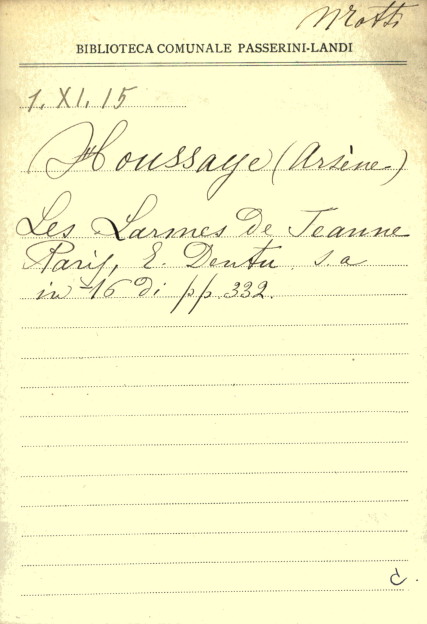 BIBLIOTECA COMUNALE PASSERINI-LANDI
1. XI. 15
Houssaye (Arsène)
Les Larmes de Jeanne
Paris, E. Dentu s. a
in-16° di pp. 332.
c.